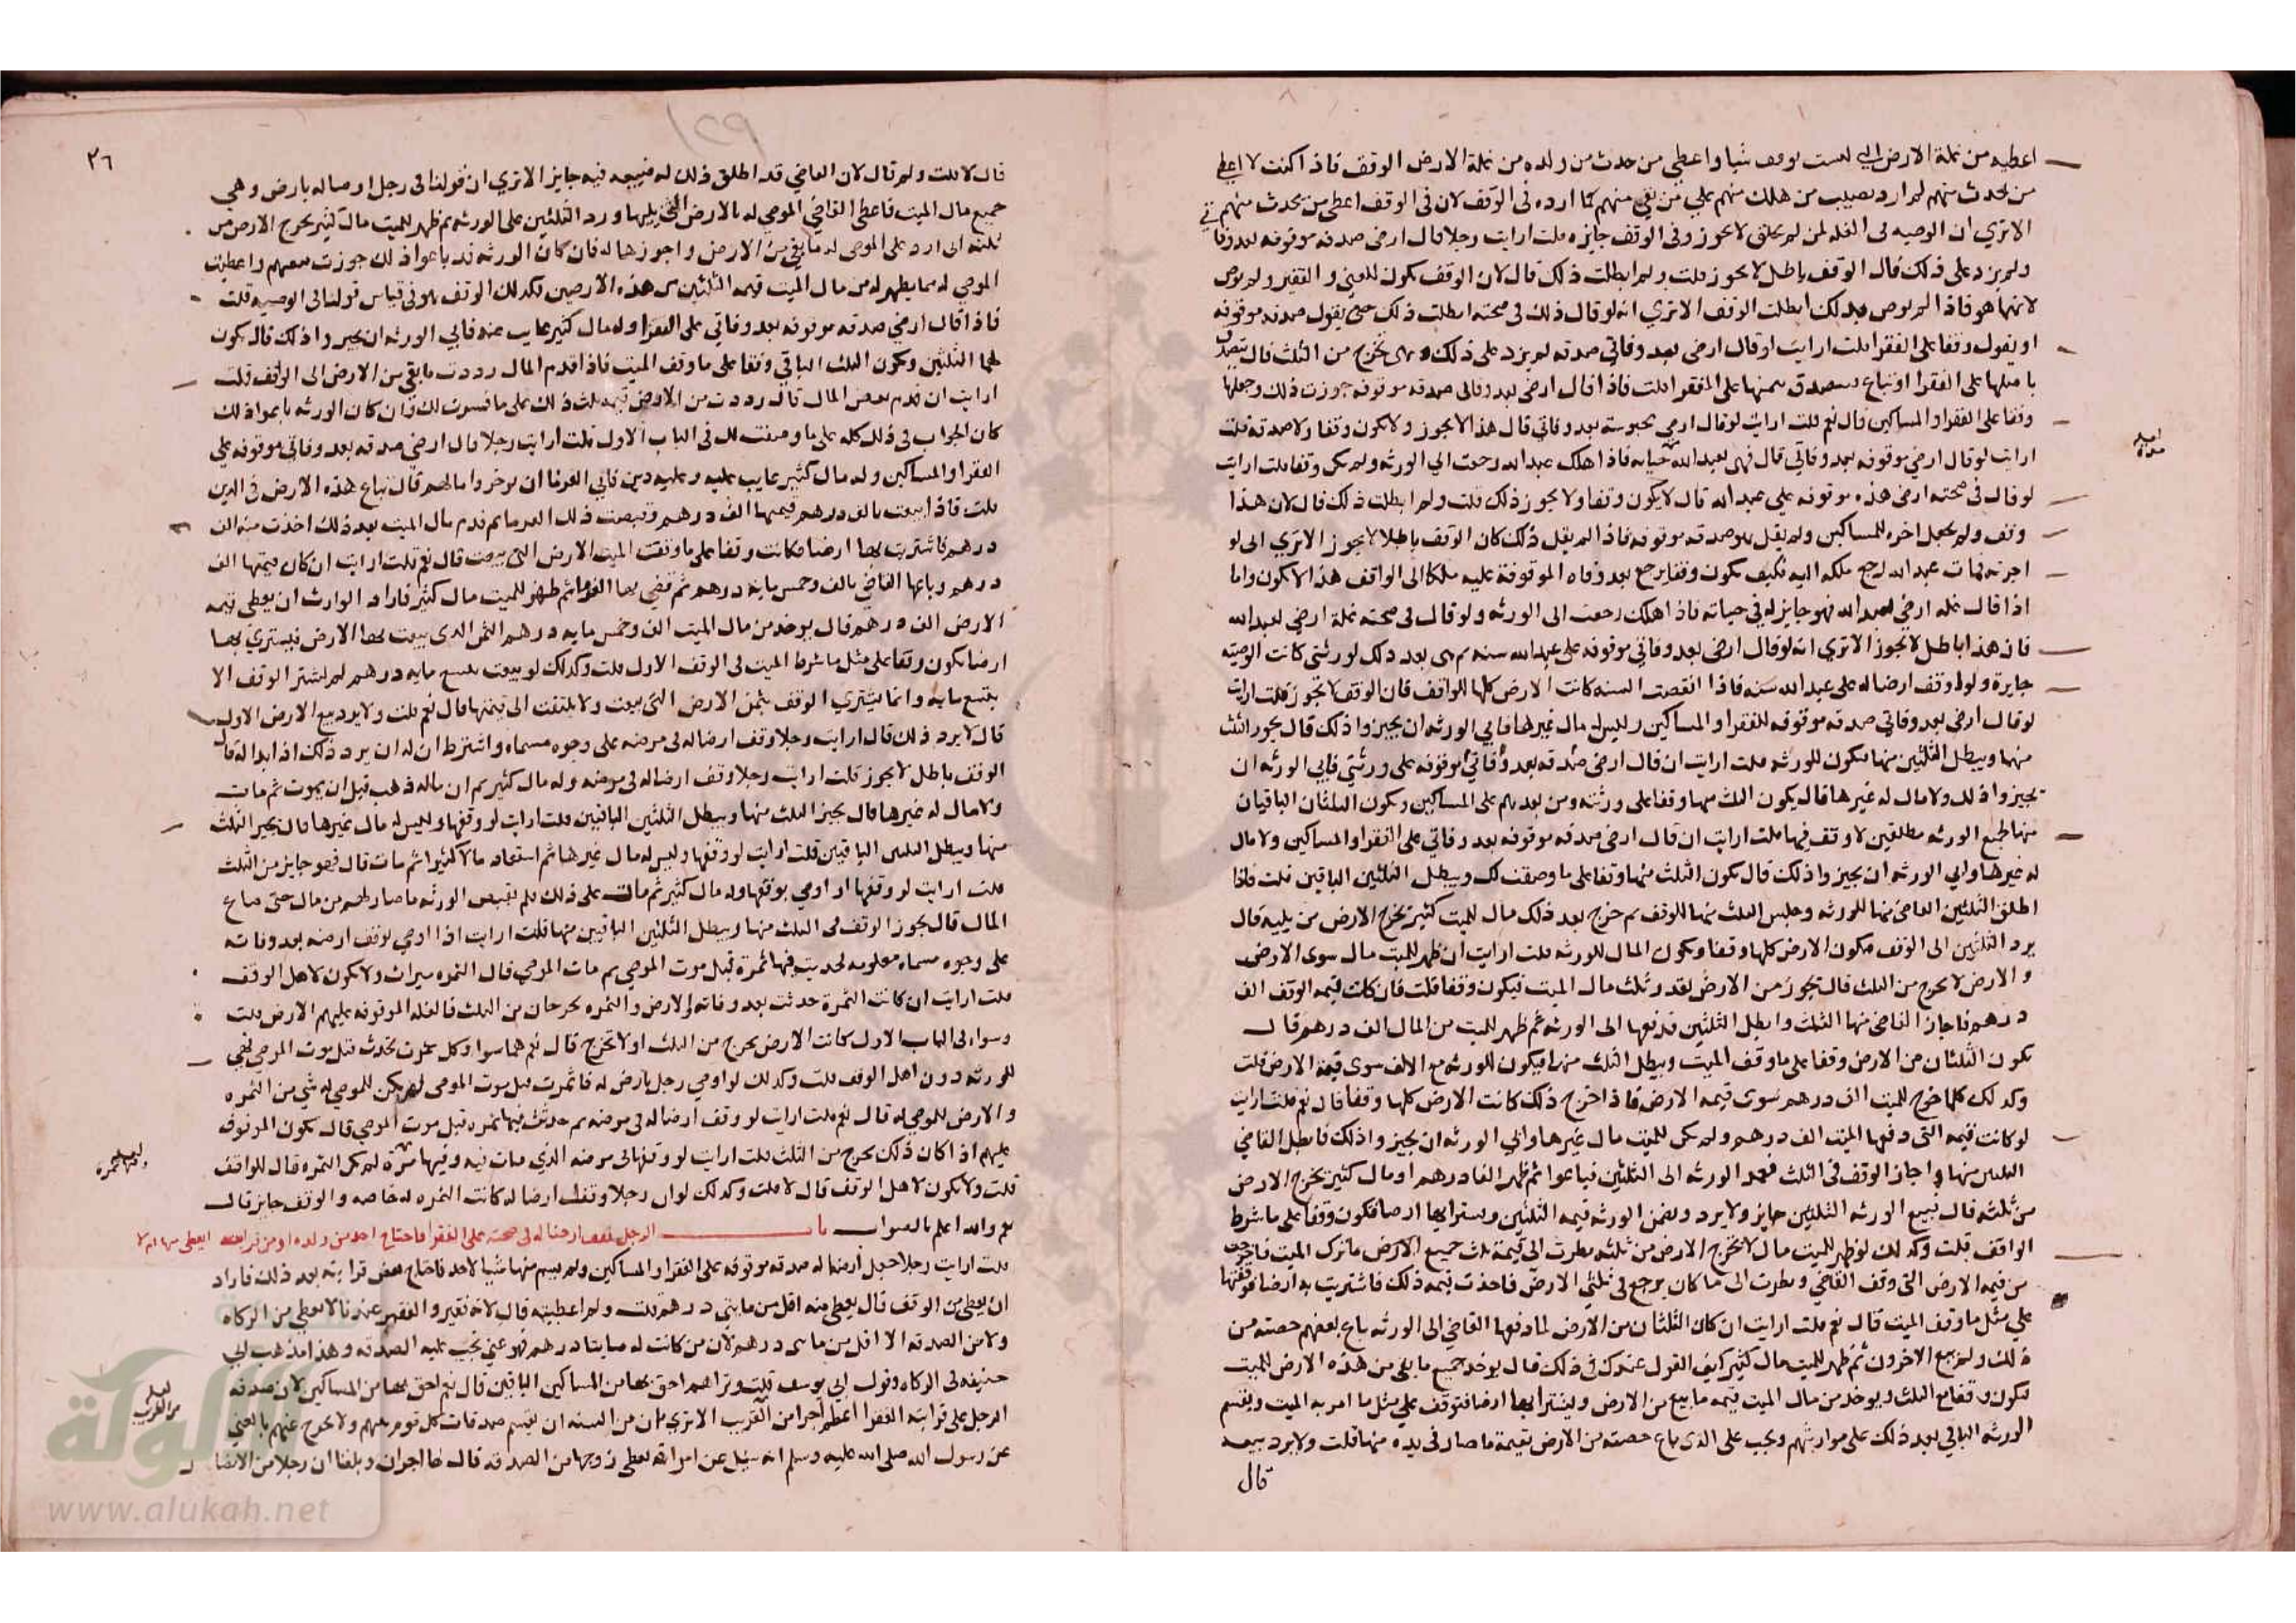 اعطيه من غلة الارض التي ليست بوقف شيا واعطي من حدث من ولده من غلة الارض الوقف فاذا كنت لا اعطي
من يحدث منهم لم ارد نصيب من هلك منهم علي من بقي منهم كما ارده في الوقف لان في الوقف اعطي من يحدث منهم
الا تري ان الوصيه في الغله لمن لم يخلق لا تجوز وفي الوقف جايزه قلت ارايت رجلا قال ارضي صدقه موقوفه بعد وفاتي
ولم يزد علي ذلك قال الوقف باطل لا يجوز قلت ولم ابطلت ذلك قال لان الوقف يكون للغني والفقير ولم يوص
لانهما هو فاذا لم يوص بذلك ابطلت الوقف الا تري انه لو قال ذلك في صحته ابطلت ذلك حتي يقول صدقه موقوفه
او يقول وقفا علي الفقرا قلت ارايت لو قال ارضي بعد وفاتي صدقه لم يزد علي ذلك وهي تخرج من الثلث قال يتصدق
باصلها علي الفقرا او تباع ويتصدق بثمنها علي الفقرا قلت فاذا قال ارضي بعد وفاتي صدقه موقوفه جوزت ذلك وجعلتها
وقفا علي الفقرا والمساكين قال نعم قلت ارايت لو قال ارضي محبوسه بعد وفاتي قال هذا لا يجوز ولا يكون وقفا ولا صدقه قلت
ارايت لو قال ارضي موقوفه بعد وفاتي قال فهي لعبد الله حياته فاذا هلك عبد الله رجعت الي الورثه ولم تكن وقفا قلت ارايت
لو قال في صحته ارضي هذه موقوفه علي عبد الله قال لا يكون وقفا ولا يجوز ذلك قلت ولم ابطلت ذلك قال لان هذا
وقف ولم يجعل اخره للمساكين ولم يقل هو صدقه موقوفه فاذا لم يقل ذلك كان الوقف باطلا لا يجوز الا تري اني لو
اجزته فمات عبد الله رجع ملكه اليه فكيف يكون وقفا يرجع بعد وفاه الموقوفة عليه ملكا الي الواقف هذا لا يكون واما
اذا قال غله ارضي لعبد الله فهو جايز له في حياته فاذا هلك رجعت الي الورثه ولو قال في صحته غلة ارضي لعبد الله
فان هذا باطل لا يجوز الا تري انه لو قال ارضي بعد وفاتي موقوفه علي عبد الله سنه ثم هي بعد ذلك لورثتي كانت الوصيه
جايزة ولو اوقف ارضا له علي عبد الله سنه فاذا انقضت السنه كانت الارض كلها للواقف فان الوقف لا يجوز قلت ارايت
لو قال ارضي بعد وفاتي صدقه موقوفه للفقرا والمساكين وليس له مال غيرها فابي الورثه ان يجيزوا ذلك قال يجوز الثلث
منها ويبطل الثلثين منها فيكون للورثه قلت ارايت ان قال ارضي صدقه بعد وفاتي موقوفه علي ورثتي فابي الورثه ان
يجيزوا ذلك ولا مال له غيرها قال يكون الثلث منها وقفا علي ورثته ومن بعدهم علي المساكين ويكون الثلثان الباقيان
منها لجميع الورثه مطلقين لا وقف فيها قلت ارايت ان قال ارضي صدقه موقوفه بعد وفاتي علي الفقرا والمساكين ولا مال
له غيرها وابي الورثه ان يجيزوا ذلك قال يكون الثلث منها وقفا علي ما وصفت لك ويبطل الثلثين الباقين قلت فاذا
اطلق الثلثين القاضي منها للورثه وحبس الثلث منها للوقف ثم خرج بعد ذلك مال للميت كثير يخرج الارض من ثلثه قال
يرد الثلثين الي الوقف فيكون الارض كلها وقفا ويكون المال للورثه قلت ارايت ان ظهر للميت مال سوي الارض
والارض لا يخرج من الثلث قال يجوز من الارض بقدر ثلث مال الميت فيكون وقفا قلت فان كانت قيمه الوقف الف
درهم فاجاز القاضي منها الثلث وابطل الثلثين فدفعها الي الورثه ثم ظهر للميت من المال الف درهم قال
يكون الثلثان من الارض وقفا علي ما وقف الميت ويبطل الثلث منها فيكون للورثه مع الالف سوي قيمة الارض قلت
وكذلك كلما خرج للميت الف درهم سوي قيمه الارض فاذا اخرج ذلك كانت الارض كلها وقفا قال نعم قلت ارايت
لو كانت قيمه التي وقفها الميت الف درهم ولم يكن للميت مال غيرها وابي الورثه ان يجيزوا ذلك فابطل القاضي
الثلثين منها واجاز الوقف في الثلث فعمد الورثه الي الثلثين فباعوا ثم ظهر الفا درهم او مال كثير يخرج الارض
من ثلثه قال يبيع الورثه الثلثين جايز ولا يرد ويضمن الورثه قيمه الثلثين ويشتر ابها ارضا فيكون وقفا علي ما شرط
الواقف قلت وكذلك لو ظهر للميت مال لا يخرج الارض من ثلثه نظرت الي قيمة ثلث جميع الارض ما ترك الميت فاخرجت
من قيمه الارض التي وقف القاضي ونظرت الي ما كان يرجع في ثلثي الارض فاخذت قيمه ذلك فاشتريت به ارضا فوقفتها
علي مثل ما وقف الميت قال نعم قلت ارايت ان كان الثلثان من الارض لما دفعها القاضي الي الورثه باع بعضهم حصته من
ذلك ولم يبع الاخرون ثم ظهر للميت مال كثير كيف القول عندك في ذلك قال يوخذ جميع ما بقي من هذه الارض للميت
فيكون وقفا مع الثلث ويوخذ من مال الميت قيمه ما بيع من الارض ويشترا بها ارضا فتوقف علي مثل ما امر به الميت ويقسم
الورثه الباقي بعد ذلك علي مواريثهم ويجب علي الذي باع حصته من الارض بقيمة ما صار في يده منها قلت ولا يرد بيعه
قال
٢٦
قال لا قلت ولم قال لان القاضي قد اطلق ذلك له فبيعه فيه جايز الا تري ان قولنا في رجل اوصا له بارض وهي
جميع مال الميت فاعطي القاضي الموصي له بالارض الثلث يليها ورد الثلثين علي الورثه ثم ظهر للميت مال كثير يخرج الارض من
ثلثه اني ارد علي الموصي له ما بقي من الارض واجوزها له فان كان الورثه قد باعوا ذلك جوزت بيعهم واعطيت
الموصي له مما يظهر له من مال الميت قيمه الثلثين من هذه الارضين فكذلك الوقف هو في قياس قولنا في الوصيه قلت
فاذا قال ارضي صدقه موقوفه بعد وفاتي علي الفقرا وله مال كثير غايب عنه فابي الورثه ان يجيزوا ذلك قال يكون
لهما الثلثين ويكون الثلث الباقي وقفا علي ما وقف الميت فاذا قدم المال رددت ما بقي من الارض الي الوقف قلت
ارايت ان قدم بعض المال قال رددت من الارض قيمه ثلث ذلك علي ما فسرت لك وان كان الورثه باعوا ذلك
كان الجواب في ذلك كله علي ما وصفت لك في الباب الاول قلت ارايت رجلا قال ارضي صدقه بعد وفاتي موقوفه علي
الفقرا والمساكين وله مال كثير غايب عليه وعليه دين فابي الغرما ان يوخروا مالهم قال تباع هذه الارض في الدين
قلت فاذا بيعت بالف درهم قيمتها الف درهم وقبضت ذلك الغرما ثم قدم مال الميت بعد ذلك اخذت منه الف
درهم فاشتريت بها ارضا فكانت وقفا علي ما وقفت الميت الارض التي بيعت قال نعم قلت ارايت ان كان قيمتها الف
درهم وباعها القاضي بالف وخمس مايه درهم ثم قضي بها الغرما ثم ظهر للميت مال كثير فاراد الوارث ان يعطي قيمه
الارض الف درهم قال يوخذ من مال الميت الف وخمس مايه درهم الثمن الذي بيعت بها الارض فيشتري بها
ارضا يكون وقفا علي مثل ما شرط الميت في الوقف الاول قلت وكذلك لو بيعت بتسع مايه درهم لم يشتر الوقف الا
بتسع مايه وانما يشتري الوقف بثمن الارض التي بيعت ولا يلتفت الي قيمتها قال نعم قلت ولا يرد بيع الارض الاول
قال لا يرد ذلك قال ارايت رجلا وقف ارضا له في مرضه علي وجوه مسماه واشترط ان له ان يرد ذلك اذا بدا له قال
الوقف باطل لا يجوز قلت ارايت رجلا وقف ارضا له في مرضه وله مال كثير ثم ان ماله ذهب قبل ان يموت ثم مات
ولا مال له غيرها قال يجيز الثلث منها ويبطل الثلثين الباقيين قلت ارايت لو وقفها وليس له مال غيرها قال يجيز الثلث
منها ويبطل الثلثين الباقيين قلت ارايت لو وقفها وليس له مال غيرها ثم استفاد مالا كثيرا ثم مات قال فهو جايز من الثلث
قلت ارايت لو وقفها او اوصي بوقفها وله مال كثير ثم مات علي ذلك فلم يقبض الورثه ما صار لهم من مال حتي ضاع
المال قال يجوز الوقف في الثلث منها ويبطل الثلثين الباقيين منها قلت ارايت اذا اوصي بوقف ارضه بعد وفاته
علي وجوه مسماه معلومه فحدثت فيها ثمرة قبل موت الموصي ثم مات الموصي قال الثمره ميراث ولا يكون لاهل الوقف
قلت ارايت ان كانت الثمرة حدثت بعد وفاته والارض والثمره يخرجان من الثلث فالغله الموقوفه عليهم الارض قلت
وسوا في الباب الاول كانت الارض يخرج من الثلث او لا تخرج قال نعم هما سوا وكل ثمرت تحدث قبل موت الموصي فهي
للورثه دون اهل الوقف قلت وكذلك لو اوصي رجل بارض له فاثمرت قبل موت الموصي لم يكن للموصي له شي من الثمره
والارض للموصي له قال نعم قلت ارايت لو وقف ارضا له في مرضه ثم حدثت فيها ثمره قبل موت الموصي قال يكون الموقوف
عليهم اذا كان ذلك يخرج من الثلث قلت ارايت لو وقفها في مرضه الذي مات فيه وفيها ثمرة لمن تكن الثمره قال للواقف
قلت ولا يكون لاهل الوقف قال لا قلت وكذلك لو ان رجلا وقف ارضا له كانت الثمره له خاصه والوقف جايز قال
نعم والله اعلم بالصواب باب الرجل يقف ارضا له في صحته علي الفقرا فاحتاج احد من ولده او من قرابته ايعطي منها ام لا
قلت ارايت رجلا جعل ارضا له صدقه موقوفه علي الفقرا والمساكين ولم يسم منها شيا لاحد فاحتاج بعض قرابته بعد ذلك فاراد
ان يعطي من الوقف قال يعطي منه اقل من مايتي درهم قلت ولم اعطيته قال لانه فقير والفقير عندنا لا يعطي من الزكاه
ولا من الصدقه الا اقل من مايتي درهم لان من كانت له مايتا درهم فهو غني تجب عليه الصدقه وهذا مذهب ابي
حنيفه في الزكاه وقول ابي يوسف قلت وتراهم احق بها من المساكين الباقين قال نعم احق بها من المساكين لان صدقه
الرجل علي قرابته الفقرا اعظم اجرا من القريب الا تري ان من السنه ان يقسم صدقات كل قوم بينهم ولا يخرج عنهم بالغني
عن رسول الله صلي الله عليه وسلم انه سيل عن امراة تعطي زوجها من الصدقه قال لها اجران وبلغنا ان رجلا من الانصار
www.alukah.net